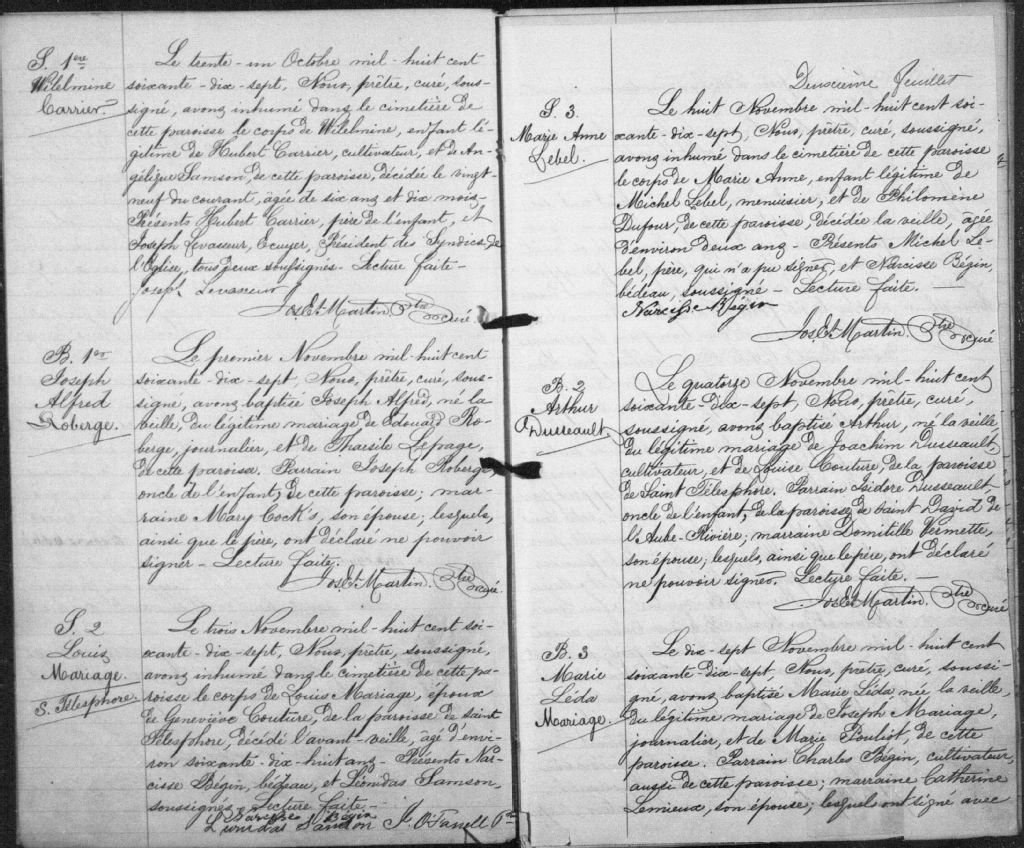 S. 1ère
Wilelmine
Carrier.
Le trente-un Octobre mil-huit cent
soixante-dix-sept, Nous, prêtre, curé, sous-
signé, avons inhumé dans le cimetière de
cette paroisse le corps de Wilelmine, enfant lé-
gitime de Hubert Carrier, cultivateur, et de An-
gélique Samson, de cette paroisse, décédée le vingt-
neuf du courant, âgée de six ans et dix mois.
Présents Hubert Carrier, père de l'enfant, et
Joseph Levasseur, Ecuyer, Président des Syndics de
l'Eglise, tous deux soussignés - Lecture faite -
Joseph Levasseur
Jos. Et. Martin. Ptre curé
B. 1er
Joseph
Alfred
Roberge.
Le premier Novembre mil-huit cent
soixante-dix-sept, Nous, prêtre, curé, sous-
signé, avons baptisé Joseph Alfred, né la
veille, du légitime mariage de Edouard Ro-
berge, journalier, et de Tharsile Lepage,
de cette paroisse. Parrain Joseph Roberge
oncle de l'enfant, de cette paroisse; mar-
raine Mary Cock's, son épouse, lesquels,
ainsi que le père, ont déclaré ne pouvoir
signer - Lecture faite.
Jos. Et. Martin. Ptre curé.
S. 2
Louis
Mariage.
S. Télesphore.
Le trois Novembre mil-huit cent soi-
xante-dix-sept, Nous, prêtre, soussigné,
avons inhumé dans le cimetière de cette pa-
roisse le corps de Louis Mariage, époux
de Geneviève Couture, de la paroisse de saint
Télesphore, décédé l'avant-veille, âgé d'envi-
ron soixante-dix-huit ans - Présents Nar-
cisse Bégin, bédeau, et Léonidas Samson,
soussignés - Lecture faite -
Narcisse Bégin
Léonidas Samson J. O'Farrell Ptre
Deuxième Feuillet
S. 3.
Marie Anne
Lebel.
Le huit Novembre mil-huit cent soi-
xante-dix-sept, Nous, prêtre, curé, soussigné,
avons inhumé dans le cimetière de cette paroisse
le corps de Marie Anne, enfant légitime de
Michel Lebel, menuisier, et de Philomène
Dufour, de cette paroisse, décédée la veille, âgée
d'environ deux ans - Présents Michel Le-
bel, père, qui n'a pu signer, et Narcisse Bégin,
bédeau, soussigné - Lecture faite. -
Narcisse Bégin
Jos. Et. Martin. Ptre curé
B. 2
Arthur
Dusseault
Le quatorze Novembre mil-huit cent
soixante-dix-sept, Nous, prêtre, curé,
soussigné, avons baptisé Arthur, né la veille,
du légitime mariage de Joachim Dusseault,
cultivateur, et de Louise Couture, de la paroisse
de Saint Télesphore. Parrain Isidore Dusseault
oncle de l'enfant, de la paroisse de Saint David de
l'Aube-Rivière; marraine Domitille Vermette,
son épouse, lesquels, ainsi que le père, ont déclaré
ne pouvoir signer. Lecture faite. -
Jos. Et. Martin. Ptre curé
B. 3
Marie
Léda
Mariage.
Le dix-sept Novembre mil-huit cent
soixante-dix-sept, Nous, prêtre, curé, soussi-
gné, avons baptisé Marie Léda née la veille,
du légitime mariage de Joseph Mariage,
journalier, et de Marie Pouliot, de cette
paroisse. Parrain Charles Bégin, cultivateur,
aussi de cette paroisse; marraine Catherine
Lemieux, son épouse, lesquels ont signé avec